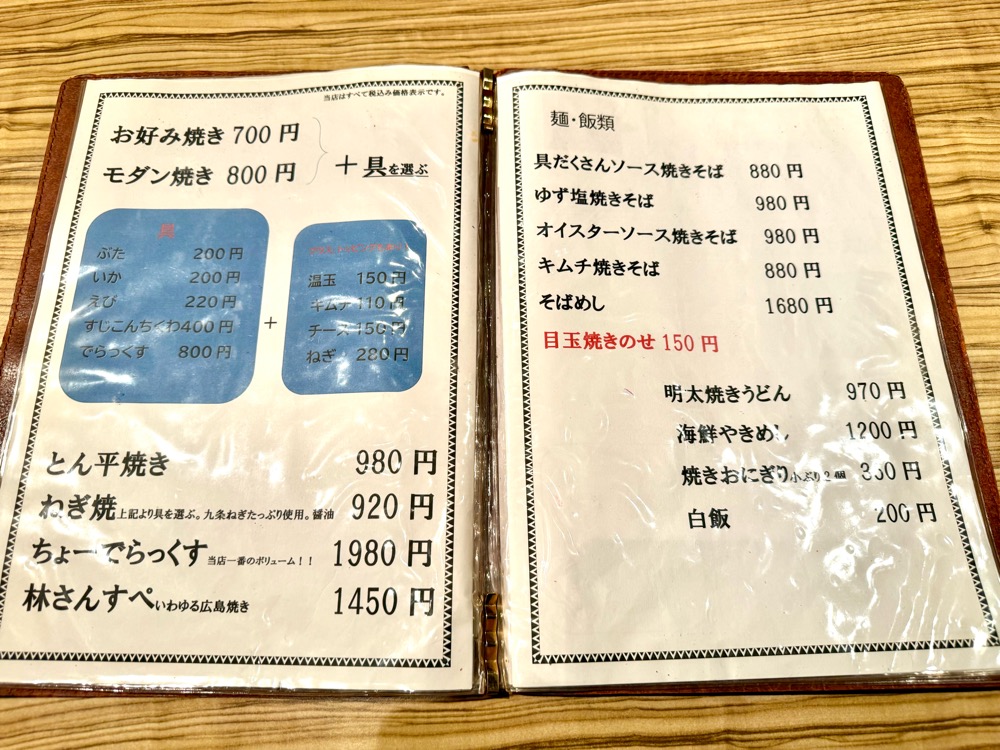 当店はすべて税込み価格表示です。
お好み焼き 700 円
モダン焼き 800 円
＋具を選ぶ
具
ぶた 200 円
いか 200 円
えび 220 円
すじこんちくわ 400 円
でらっくす 800 円
+
温玉 150 円
キムチ 110 円
チーズ 150 円
ねぎ 280 円
とん平焼き 980 円
ねぎ焼 上記より具を選ぶ。九条ねぎたっぷり使用。醤油 920 円
ちょーでらっくす 当店一番のボリューム！！ 1980 円
林さんすぺ いわゆる広島焼き 1450 円
麺・飯類
具だくさんソース焼きそば 880 円
ゆず塩焼きそば 980 円
オイスターソース焼きそば 980 円
キムチ焼きそば 880 円
そばめし 1680 円
目玉焼きのせ 150 円
明太焼きうどん 970 円
海鮮やきめし 1200 円
焼きおにぎり 小ぶり2個 円
白飯 200 円